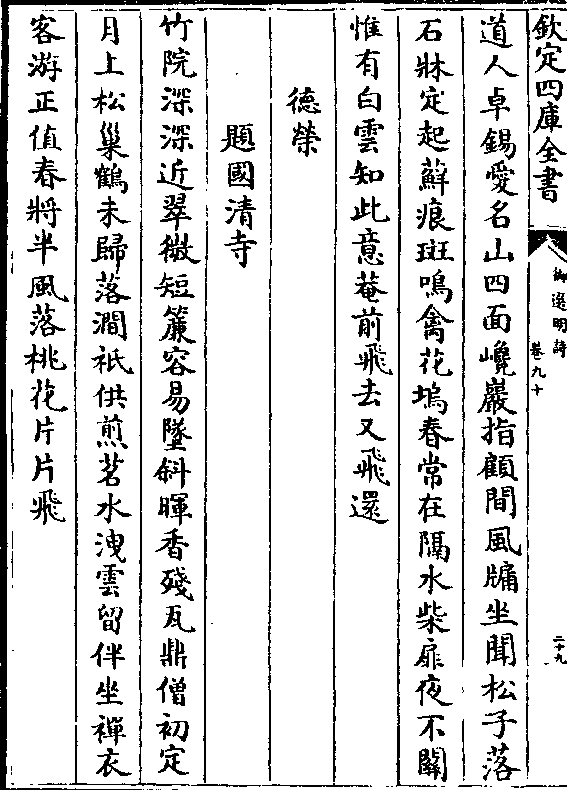 欽定四庫全書
御選明詩
卷九十
二十九
道人卓錫愛名山四面巉巖指顧間風牖坐聞松子落
石牀定起蘚痕斑鳴禽花塢春常在隔水柴扉夜不關
惟有白雲知此意菴前飛去又飛還
德榮
題國清寺
竹院深深近翠微短簾容易墜斜暉香殘瓦鼎僧初定
月上松巢鶴未歸落澗祇供煎茗水洩雲留伴坐禪衣
客游正值春將半風落桃花片片飛